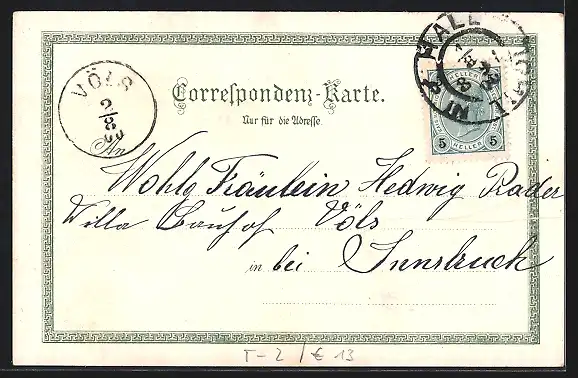 HALL
IN TIROL
VÖLS
2/8
Correspondenz-Karte.
Nur für die Adresse.
HELLER
5 HELLER 5
Wohlg Fräulein Hedwig Rader
Villa Bauhof Völs
in bei Innsbruck
T-2 / € 13